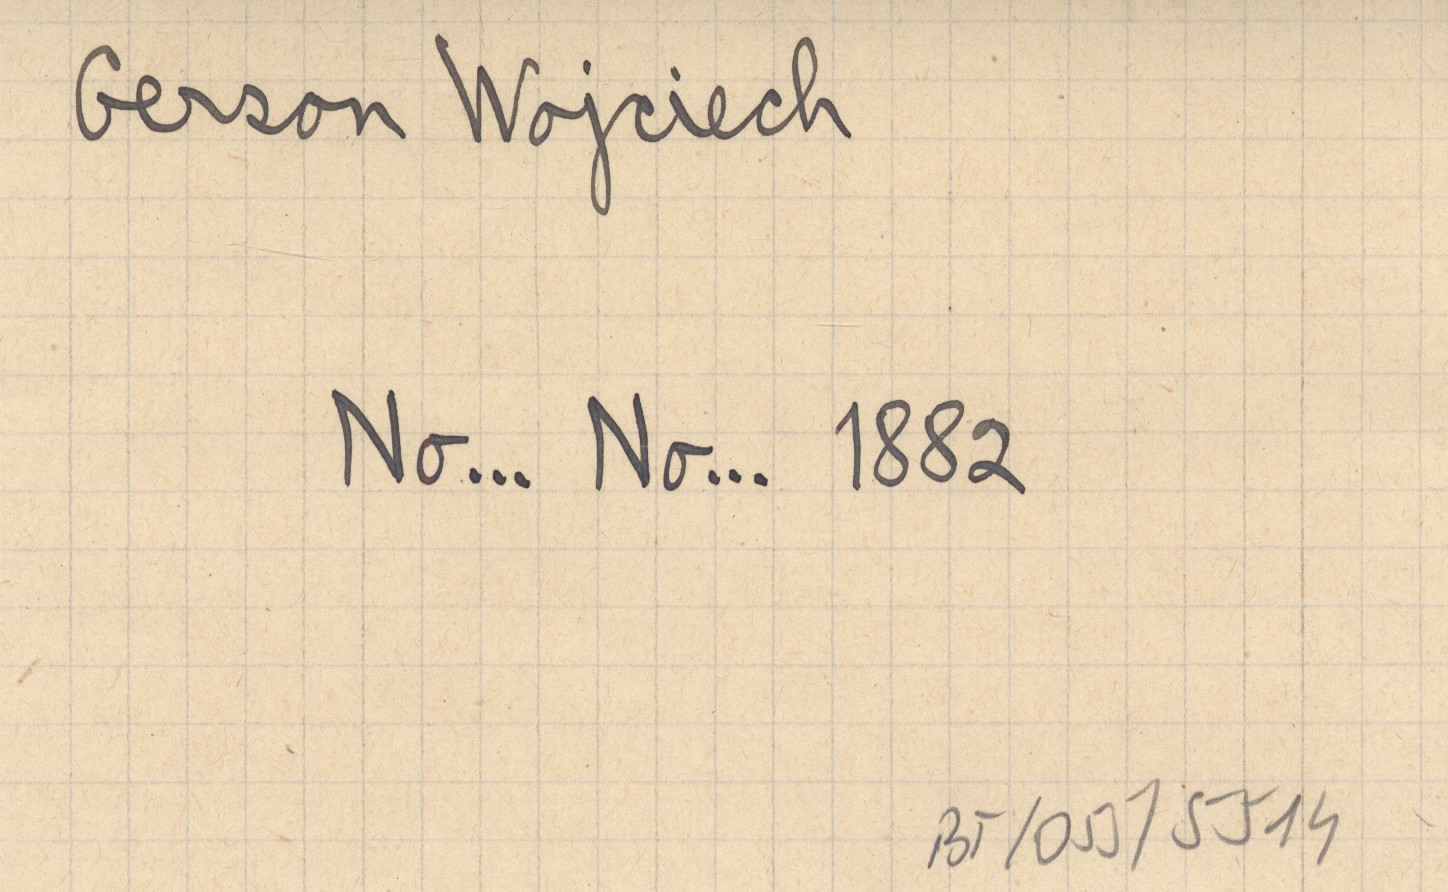 Gerson Wojciech
No... No... 1882
BT/055/5514